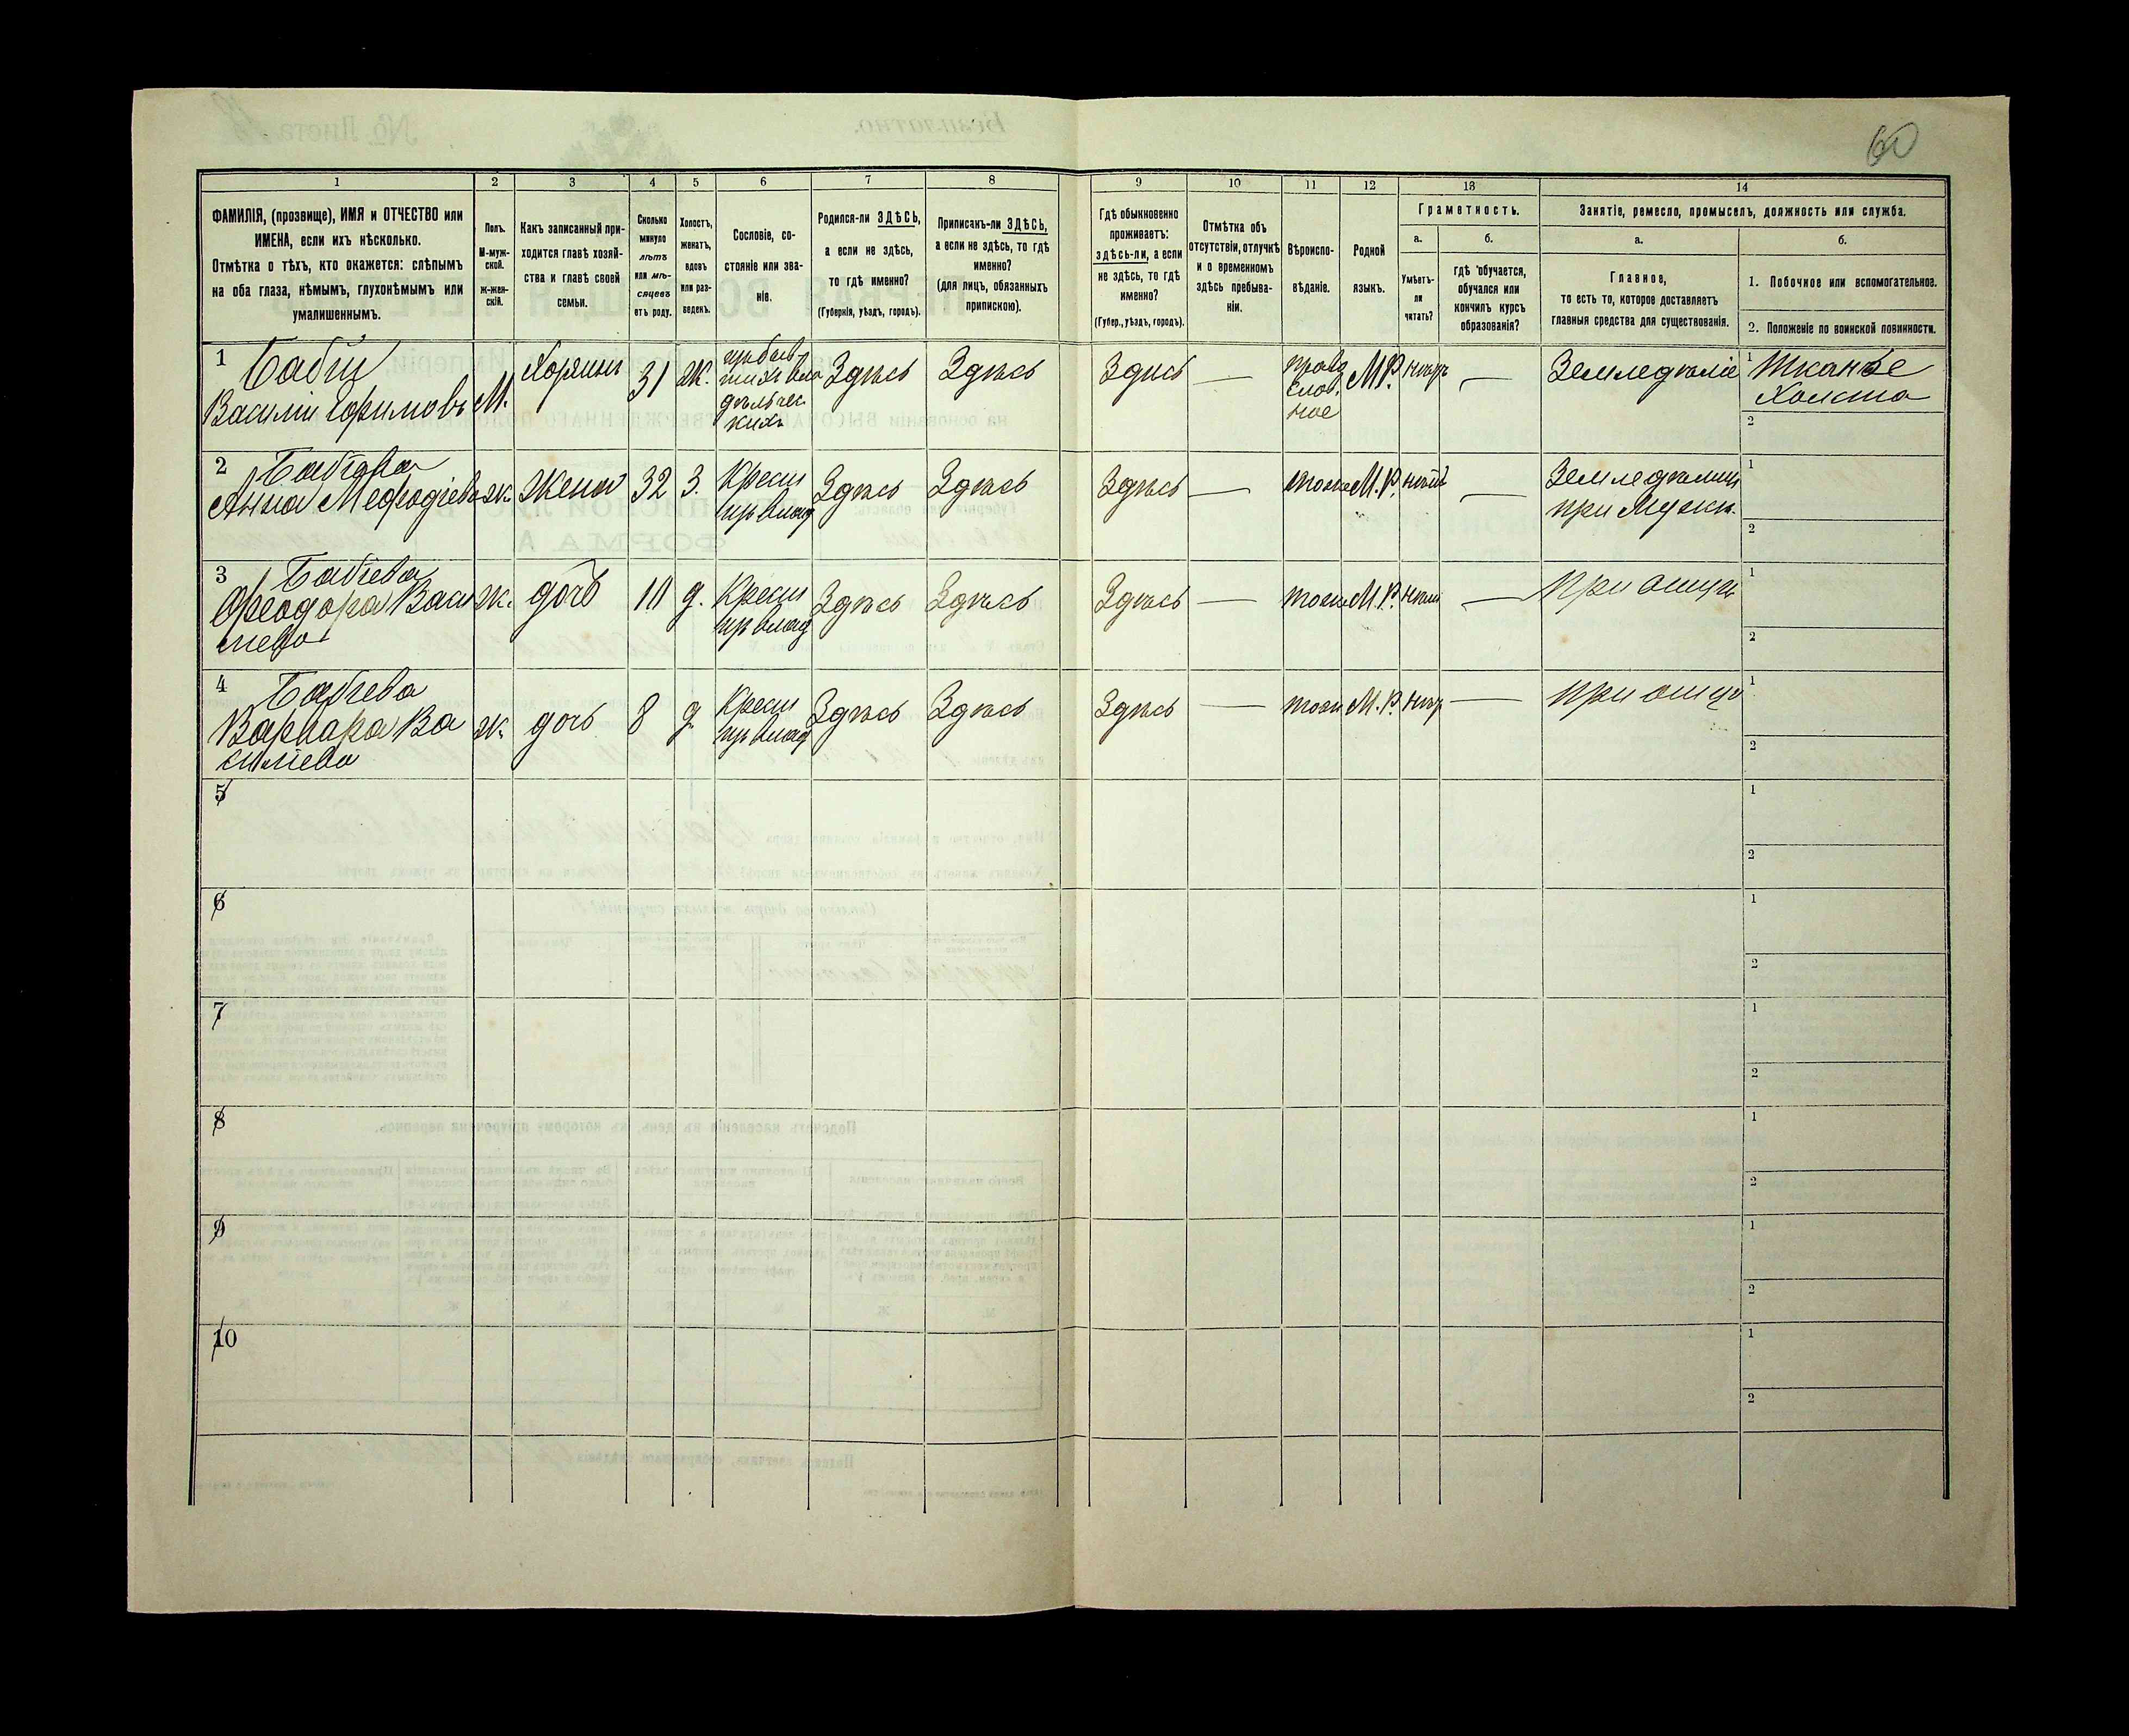 60
1 2 3 4 5 6 7 8 9 10 11 12 13 14
ФАМИЛІЯ, (прозвище), ИМЯ и ОТЧЕСТВО или
ИМЕНА, если ихъ нѣсколько.
Отмѣтка о тѣхъ, кто окажется: слѣпымъ
на оба глаза, нѣмымъ, глухонѣмымъ или
умалишеннымъ.
Полъ.
М-муж-
ской.
Ж-жен-
скій.
Какъ записанный при-
ходится главѣ хозяй-
ства и главѣ своей
семьи.
Сколько
минуло
лѣтъ
или мѣ-
сяцевъ
отъ роду.
Холостъ,
женатъ,
вдовъ
или раз-
веденъ.
Сословіе, со-
стояніе или зва-
ніе.
Родился-ли ЗДѢСЬ,
а если не здѣсь,
то гдѣ именно?
(Губернія, уѣздъ, городъ).
Приписанъ-ли ЗДѢСЬ,
а если не здѣсь, то гдѣ
именно?
(для лицъ, обязанныхъ
припискою).
Гдѣ обыкновенно
проживаетъ:
здѣсь-ли, а если
не здѣсь, то гдѣ
именно?
(Губер., уѣздъ, городъ).
Отмѣтка объ
отсутствіи, отлучкѣ
и о временномъ
здѣсь пребыва-
ніи.
Вѣроиспо-
вѣданіе.
Родной
языкъ.
Грамотность.
а.
Умѣетъ-
ли
читать?
б.
гдѣ обучается,
обучался или
кончилъ курсъ
образованія?
Занятіе, ремесло, промыселъ, должность или служба.
а.
Главное,
то есть то, которое доставляетъ
главныя средства для существованія.
б.
1. Побочное или вспомогательное.
2. Положеніе по воинской повинности.
1 Бабій
Василій М. 31 ж.
Здѣсь Здѣсь Здѣсь — право
слав.
ное
М.Р. — Земледѣліе 1 Тканье
Холста
2
2 Бабіева
Анна Мефодіева ж. жена 32 З. Крест
Здѣсь Здѣсь Здѣсь — тоже М.Р. нѣтъ — 1
2
3 Бабіева
Феодора Васи
лева
ж. дочь д. Крест
Здѣсь Здѣсь Здѣсь — тоже М.Р. — При отцѣ 1
2
4 Бабіева
Варвара Ва
силіева
ж. дочь 8 д. Крест
Здѣсь Здѣсь Здѣсь — тоже М.Р. — при отцѣ 1
2
5 1
2
6 1
2
7 1
2
8 1
2
9 1
2
10 1
2